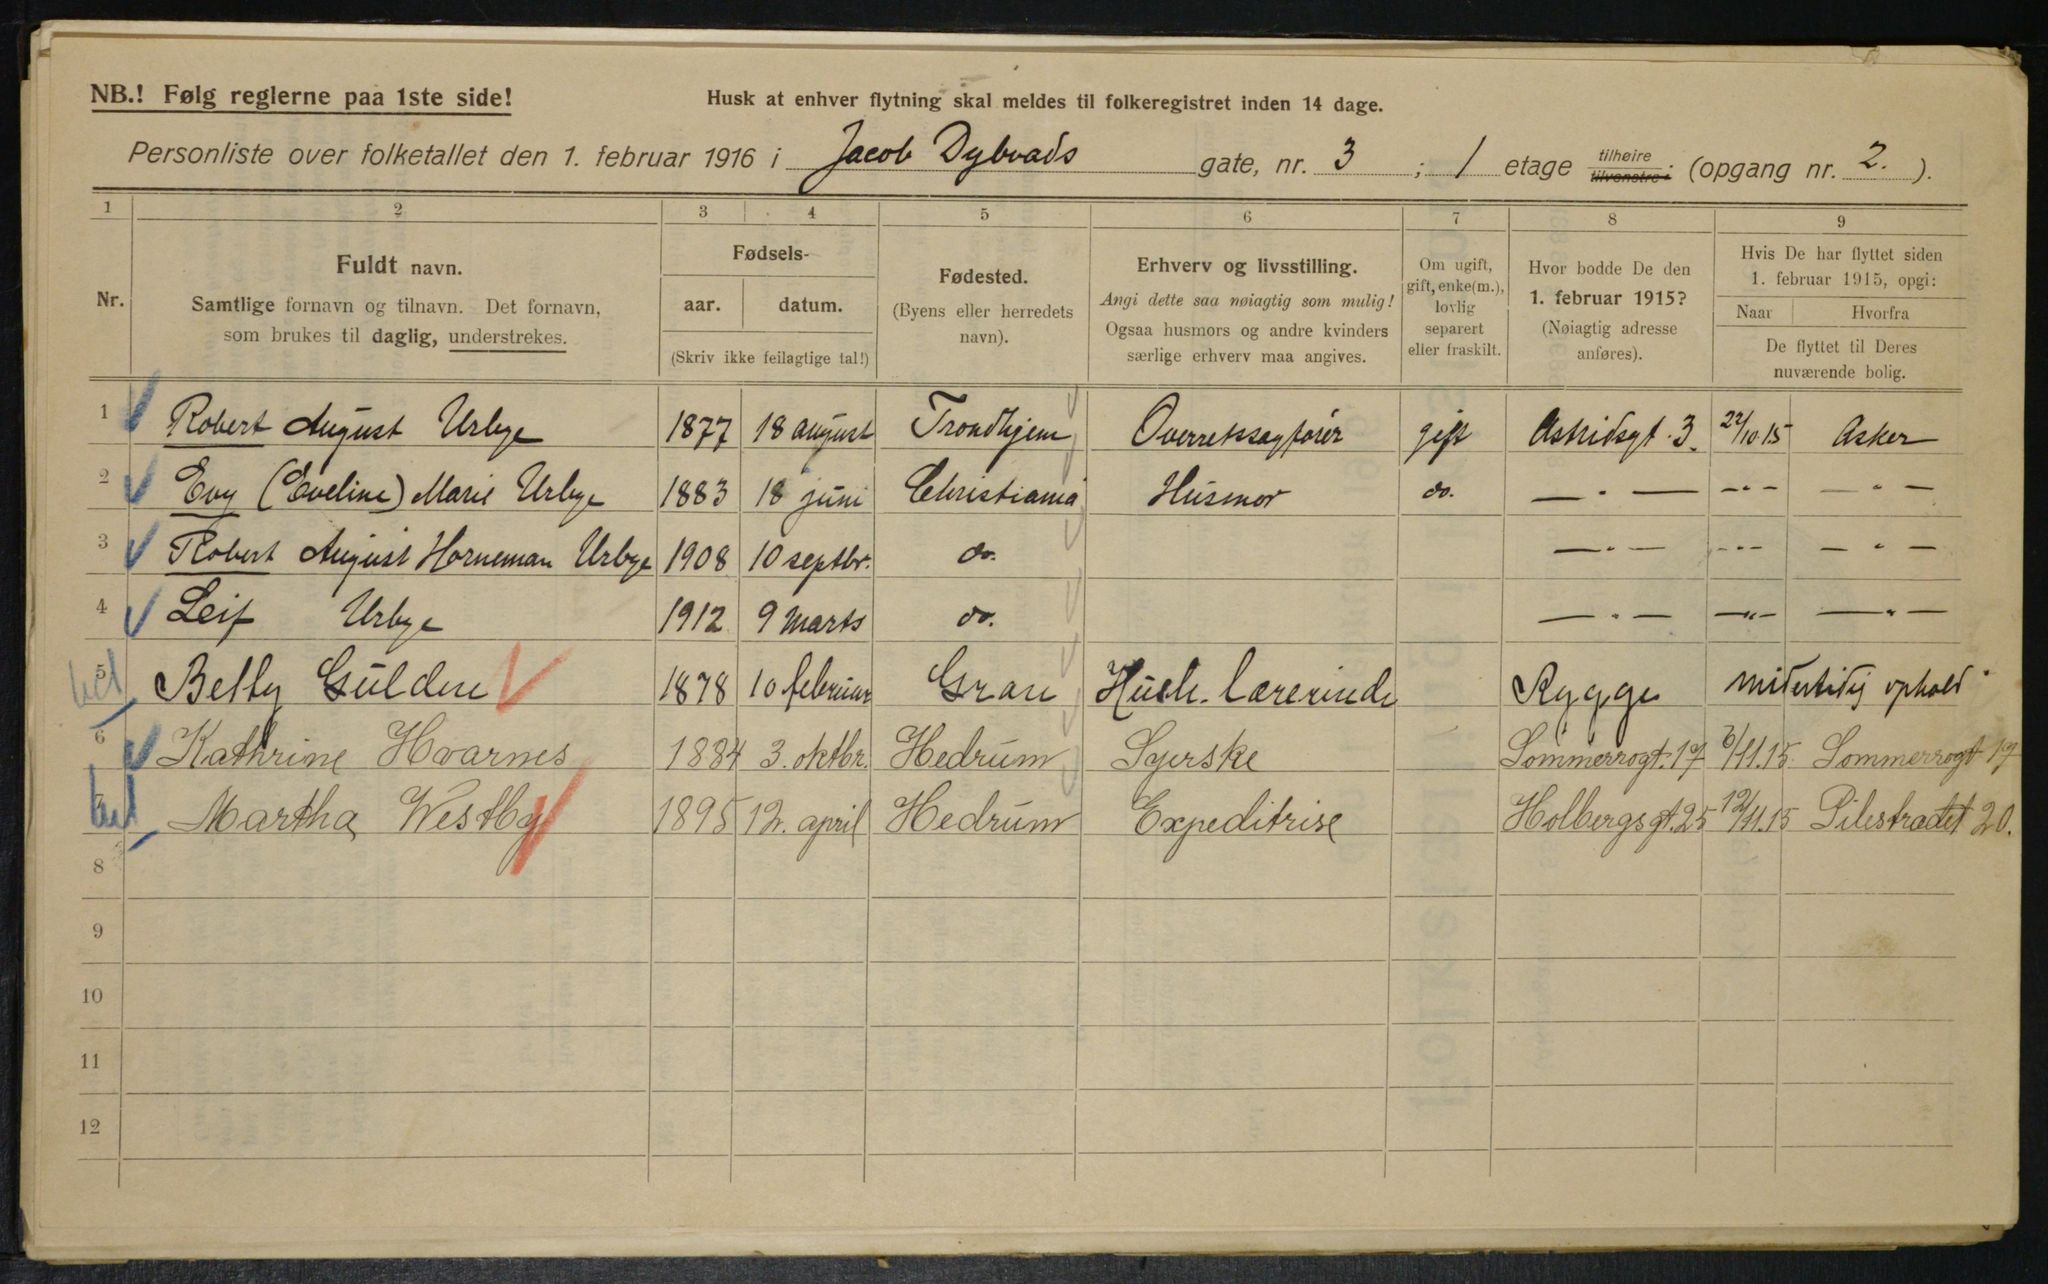 NB.! Følg reglerne paa 1ste side!
Husk at enhver flytning skal meldes til folkeregistret inden 14 dage.
Personliste over folketallet den 1. februar 1916 i Jacob Dybvads gate, nr. 3 ; 1 etage tilhøire tilvenstre: (opgang nr. 2. ).
1 2 3 4 5 6 7 8 9
Nr.
Fuldt navn.
Samtlige fornavn og tilnavn. Det fornavn,
som brukes til daglig, understrekes.
Fødsels-
aar. datum.
(Skriv ikke feilagtige tal!)
Fødested.
(Byens eller herredets
navn).
Erhverv og livsstilling.
Angi dette saa nøiagtig som mulig!
Ogsaa husmors og andre kvinders
særlige erhverv maa angives.
Om ugift,
gift, enke(m.),
lovlig
separert
eller fraskilt.
Hvor bodde De den
1. februar 1915?
(Nøiagtig adresse
anføres).
Hvis De har flyttet siden
1. februar 1915, opgi:
Naar Hvorfra
De flyttet til Deres
nuværende bolig.
1 Robert August Urbye 1877 18 august Trondhjem Overretssagfører gift Astridsgt. 3. 22/10.15 Asker
2 Evy (Eveline) Marie Urbye 1883 18 juni Christiania Husmor do. — " — — " — — " —
3 Robert August Horneman Urbye 1908 10 septbr. do. — " — — " — — " —
4 Leif Urbye 1912 9 marts do. — " — — " — — " —
5 Betty Gulden 1878 10 februar Gran Hush. Lærerinde Rygge midertidig ophold
6 Kathrine Hvarnes 1884 3. oktbr. Hedrum Syerske Sommerrogt. 17 /11.15. Sommerrogt 17
7 Martha Westby 1895 12. april Hedrum Expeditrise Holbergsgt. 25 12/11.15 Pilestrædet 20.
8
9
10
11
12